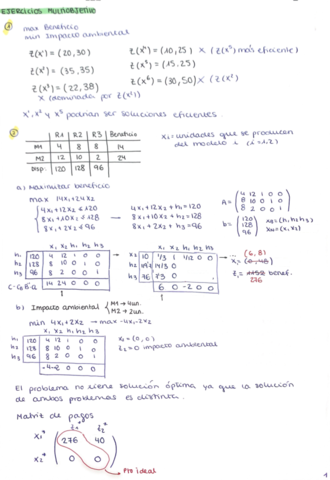 EJERCICIOS MULTIOBJETIVO
① max Beneficio
min Impacto ambiental
Z(x¹) = (20,30)
Z(x⁴) = (10,25) X (Z(x⁵) más eficiente)
Z(x²) = (35,35)
Z(x⁵) = (15,25)
Z(x³) = (22,38)
Z(x⁶) = (30,50) X (Z(x²)
X (dominada por Z(x²))
x¹, x² y x⁵ podrían ser soluciones eficientes.
②
R1 R2 R3 Beneficio
M1 4 8 8 14
M2 12 10 2 24
Disp. 120 128 96
xᵢ = unidades que se producen
del modelo i (i=1,2)
a) Maximizar beneficio
max 14x₁+24x₂
4x₁+12x₂ ≤ 120
8x₁+10x₂ ≤ 128
8x₁+2x₂ ≤ 96
4x₁+12x₂+h₁=120
8x₁+10x₂+h₂=128
8x₁+2x₂+h₃=96
A = (4 12 1 0 0
8 10 0 1 0
8 2 0 0 1)
b = (120
128
96)
x₁ x₂ h₁ h₂ h₃
h₁ 120 4 12 1 0 0
h₂ 128 8 10 0 1 0
h₃ 96 8 2 0 0 1
14 24 0 0 0
x₁ x₂ h₁ h₂ h₃
x₂ 10 1/3 1 1/12 0 0
h₂
h₃
6 0 -2 0 0
(6, 8)
benef.
276
b) Impacto ambiental
M1 → 4un.
M2 → 2un.
min 4x₁+2x₂ → max -4x₁-2x₂
x₁ x₂ h₁ h₂ h₃
h₁ 120 4 12 1 0 0
h₂ 128 8 10 0 1 0
h₃ 96 8 2 0 0 1
-4 -2 0 0 0
x₂ = (0,0)
Z₂ = 0 impacto ambiental
El problema no tiene solución óptima ya que la solución
de ambos problemas es distinta.
Matriz de pagos
Z₁* Z₂*
x₁* 276 40
x₂* 0 0
Pto ideal
1